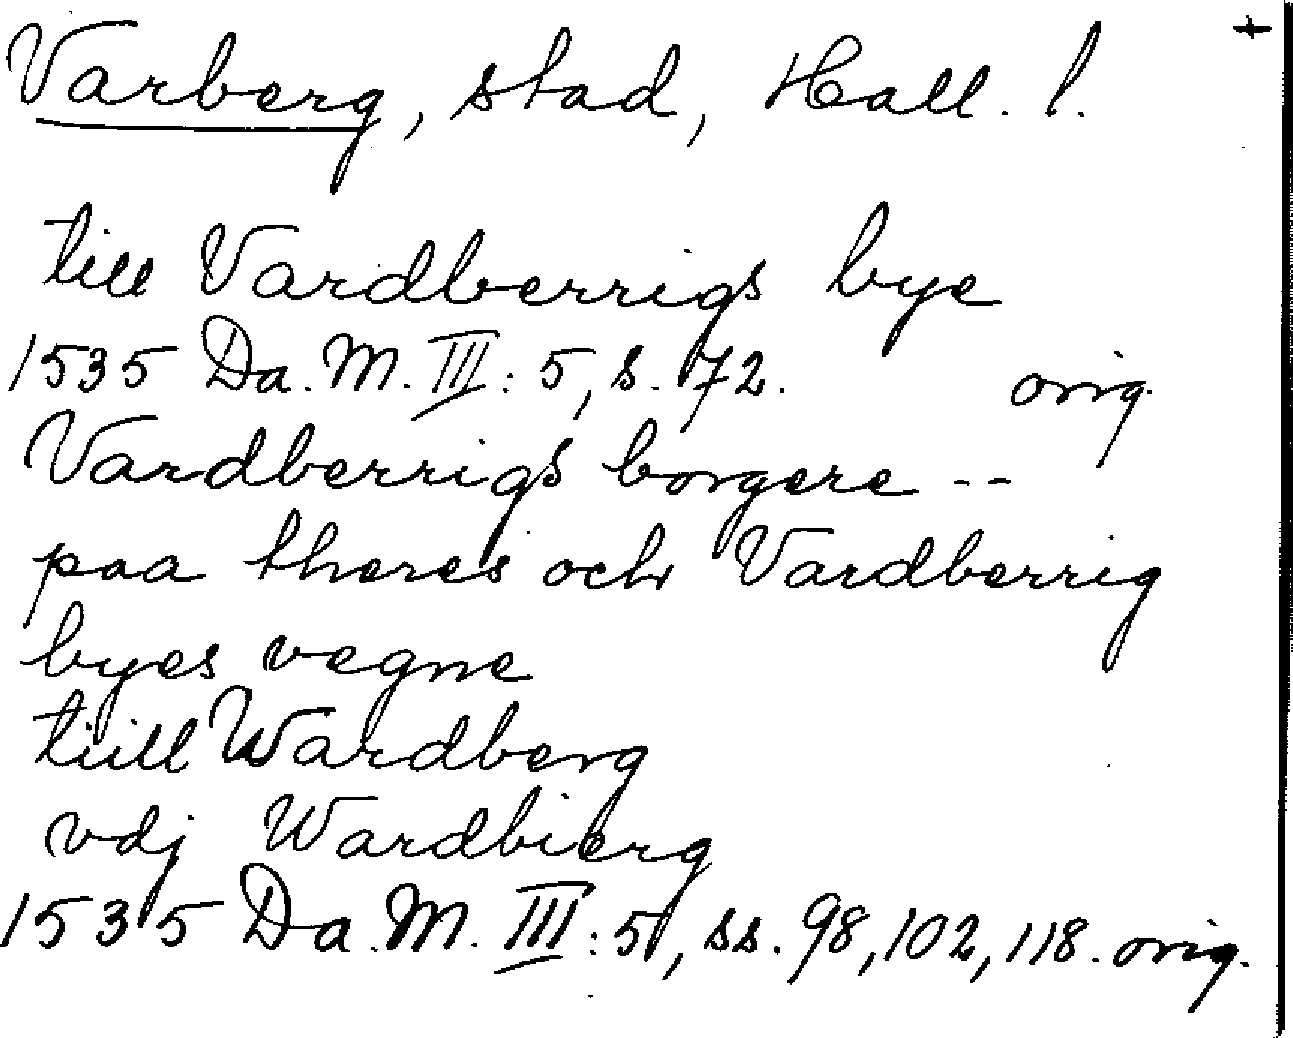 Varberg, stad, Hall. l. +
till Vardberrigs bye
1535 Da. M. III: 5, s. 72. orig.
Vardberrigs borgere --
paa theres och Vardberrig
byes vegne
tiill Wardberg
vdj Wardbierg
1535 Da. M. III: 5, ss. 98, 102, 118. orig.